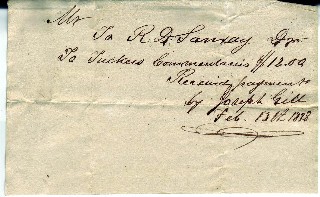 Mr
To R D Sanxay Dr
To Tuckers Commentaries $12.00
Received payment
by Joseph Gill
Feb. 13th